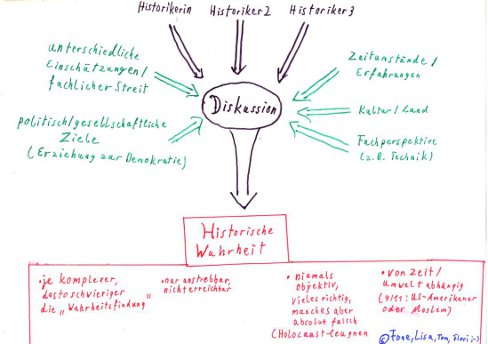 Historikerin Historiker2 Historiker3
unterschiedliche
Einschätzungen/
fachlicher Streit
politisch/gesellschaftliche
Ziele
(Erziehung zur Demokratie)
Diskussion
Zeitumstände/
Erfahrungen
Kultur/Land
Fachperspektive
(z.B. Technik)
Historische
Wahrheit
• je komplexer,
desto schwieriger
die „Wahrheitsfindung"
• nur anstrebbar,
nicht erreichbar
• niemals
objektiv,
vieles richtig,
manches aber
absolut falsch
(Holocaust-leugnen
• von Zeit/
Umwelt abhängig
(9/11: US-Amerikaner
oder Moslem)
© Fone, Lisa, Tom, Flori ;-)